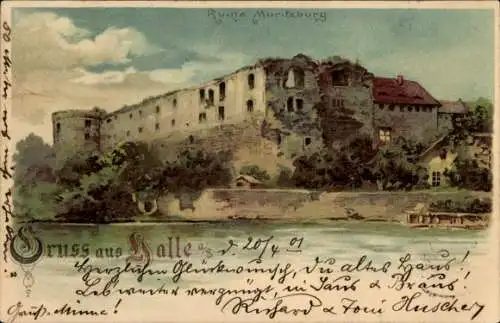 Ruine Moritzburg
Gruss aus Halle a/S d. 20/4 01
Herzlichen Glückwunsch, Du altes Haus!
Leb weiter vergnügt, in Saus & Braus!
Richard & Toni Huscher
Gruß Minna!